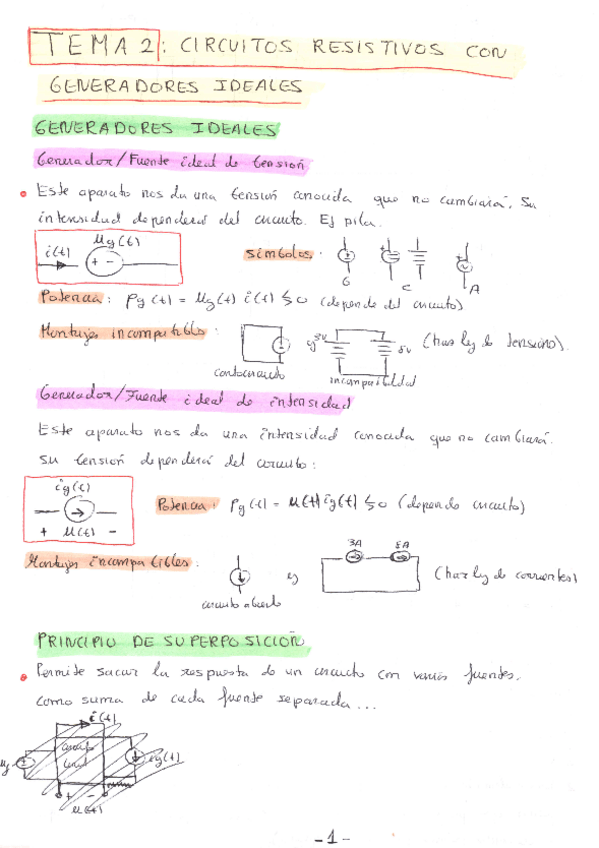 TEMA 2: CIRCUITOS RESISTIVOS CON
GENERADORES IDEALES
GENERADORES IDEALES
Generador/Fuente ideal de tensión
Este aparato nos da una tensión conocida que no cambiará. Su
intensidad dependerá del circuito. Ej pila.
i(t) ug(t)
+ -
Símbolos:
G C A
Potencia: pg(t) = ug(t) i(t) ≶ 0 (depende del circuito)
Montajes incompatibles:
cortocircuito
ej 3V 5V (haz ley de tensiones).
incompatibilidad
Generador/Fuente ideal de intensidad
Este aparato nos da una intensidad conocida que no cambiará.
su tensión dependerá del circuito:
ig(t)
+ u(t) -
Potencia: pg(t) = u(t) ig(t) ≶ 0 (depende circuito)
Montajes incompatibles:
circuito abierto
ej 3A 5A (haz ley de corrientes)
PRINCIPIO DE SUPERPOSICIÓN
Permite sacar la respuesta de un circuito con varias fuentes,
como suma de cada fuente separada...
i(t)
ug ig(t)
+ -
u(t)
-1-